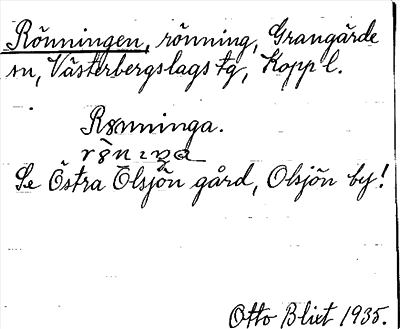 Rönningen, rönning, Grangärde
sn, Västerbergslags tg, Kopp l.
Rønninga.
Se Östra Olsjön gård, Olsjön by!
Otto Blixt 1935.